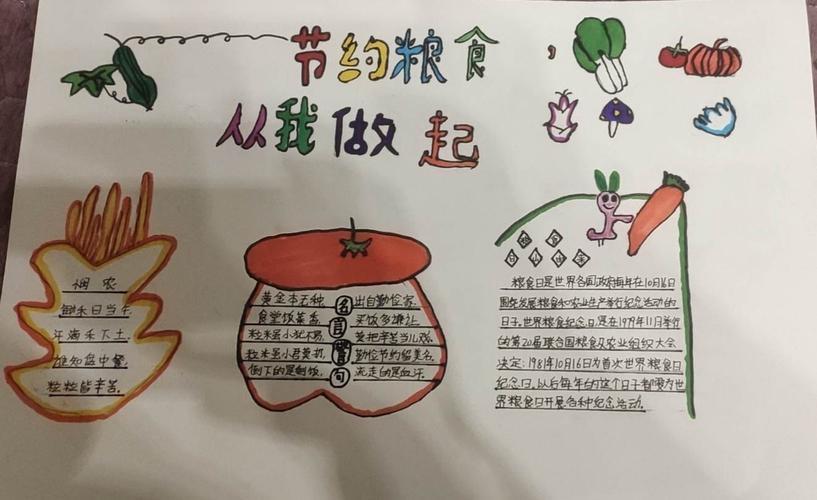 节约粮食,
从我做起
悯农
锄禾日当午
汗滴禾下土
谁知盘中餐
粒粒皆辛苦.
名言警句
黄金本无种, 出自勤俭家.
食堂饭菜香, 买饭多谦让.
粒米虽小犹不易, 莫把辛苦当儿戏.
粒米虽小君莫扔 勤俭节约留美名.
倒下的是剩饭, 流走的是血汗.
粮食
日小由来
粮食日是世界各国政府每年在10月16日
围绕发展粮食和农业生产举行纪念活动的
日子.世界粮食纪念日,是在1979年11月举行
的第20届联合国粮食及农业组织大会
决定:1981年10月16日为首次世界粮食日
纪念日.以后每年的这个日子都要为世
界粮食日开展各种纪念活动.